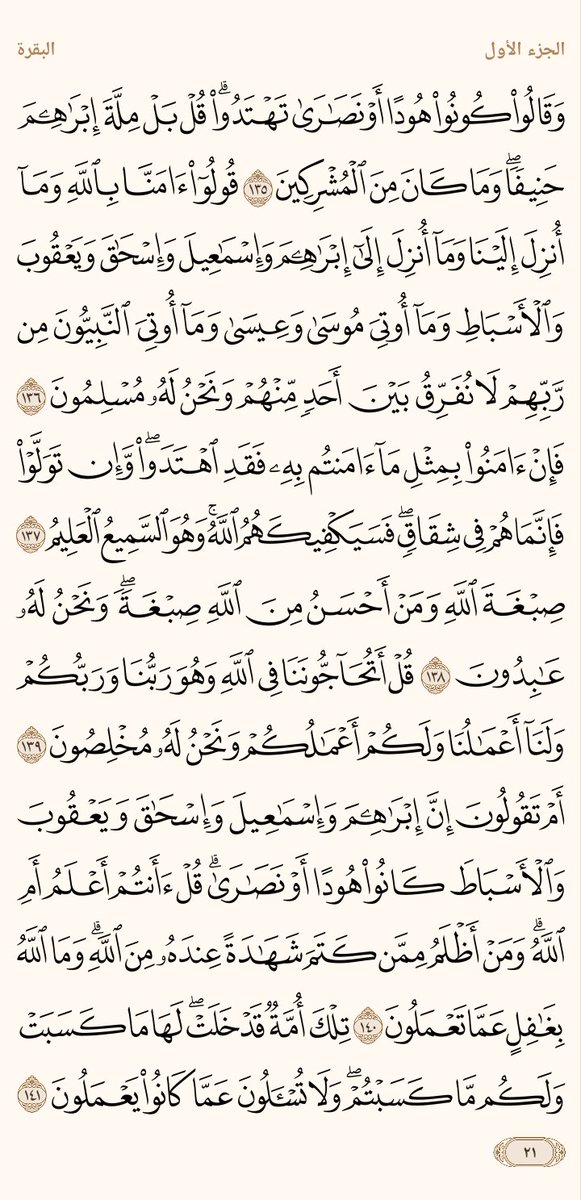 الجزء الأول
البقرة
وَقَالُوا۟ كُونُوا۟ هُودًا أَوْ نَصَـٰرَىٰ تَهْتَدُوا۟ ۗ قُلْ بَلْ مِلَّةَ إِبْرَٰهِـۧمَ
حَنِيفًا ۖ وَمَا كَانَ مِنَ ٱلْمُشْرِكِينَ ١٣٥ قُولُوٓا۟ ءَامَنَّا بِٱللَّهِ وَمَآ
أُنزِلَ إِلَيْنَا وَمَآ أُنزِلَ إِلَىٰٓ إِبْرَٰهِـۧمَ وَإِسْمَـٰعِيلَ وَإِسْحَـٰقَ وَيَعْقُوبَ
وَٱلْأَسْبَاطِ وَمَآ أُوتِىَ مُوسَىٰ وَعِيسَىٰ وَمَآ أُوتِىَ ٱلنَّبِيُّونَ مِن
رَّبِّهِمْ لَا نُفَرِّقُ بَيْنَ أَحَدٍ مِّنْهُمْ وَنَحْنُ لَهُۥ مُسْلِمُونَ ١٣٦
فَإِنْ ءَامَنُوا۟ بِمِثْلِ مَآ ءَامَنتُم بِهِۦ فَقَدِ ٱهْتَدَوا۟ ۖ وَّإِن تَوَلَّوْا۟
فَإِنَّمَا هُمْ فِى شِقَاقٍ ۖ فَسَيَكْفِيكَهُمُ ٱللَّهُ ۚ وَهُوَ ٱلسَّمِيعُ ٱلْعَلِيمُ ١٣٧
صِبْغَةَ ٱللَّهِ وَمَنْ أَحْسَنُ مِنَ ٱللَّهِ صِبْغَةً ۖ وَنَحْنُ لَهُۥ
عَـٰبِدُونَ ١٣٨ قُلْ أَتُحَآجُّونَنَا فِى ٱللَّهِ وَهُوَ رَبُّنَا وَرَبُّكُمْ
وَلَنَآ أَعْمَـٰلُنَا وَلَكُمْ أَعْمَـٰلُكُمْ وَنَحْنُ لَهُۥ مُخْلِصُونَ ١٣٩
أَمْ تَقُولُونَ إِنَّ إِبْرَٰهِـۧمَ وَإِسْمَـٰعِيلَ وَإِسْحَـٰقَ وَيَعْقُوبَ
وَٱلْأَسْبَاطَ كَانُوا۟ هُودًا أَوْ نَصَـٰرَىٰ ۗ قُلْ ءَأَنتُمْ أَعْلَمُ أَمِ
ٱللَّهُ ۗ وَمَنْ أَظْلَمُ مِمَّن كَتَمَ شَهَـٰدَةً عِندَهُۥ مِنَ ٱللَّهِ ۗ وَمَا ٱللَّهُ
بِغَـٰفِلٍ عَمَّا تَعْمَلُونَ ١٤٠ تِلْكَ أُمَّةٌ قَدْ خَلَتْ ۖ لَهَا مَا كَسَبَتْ
وَلَكُم مَّا كَسَبْتُمْ ۖ وَلَا تُسْـَٔلُونَ عَمَّا كَانُوا۟ يَعْمَلُونَ ١٤١
٢١